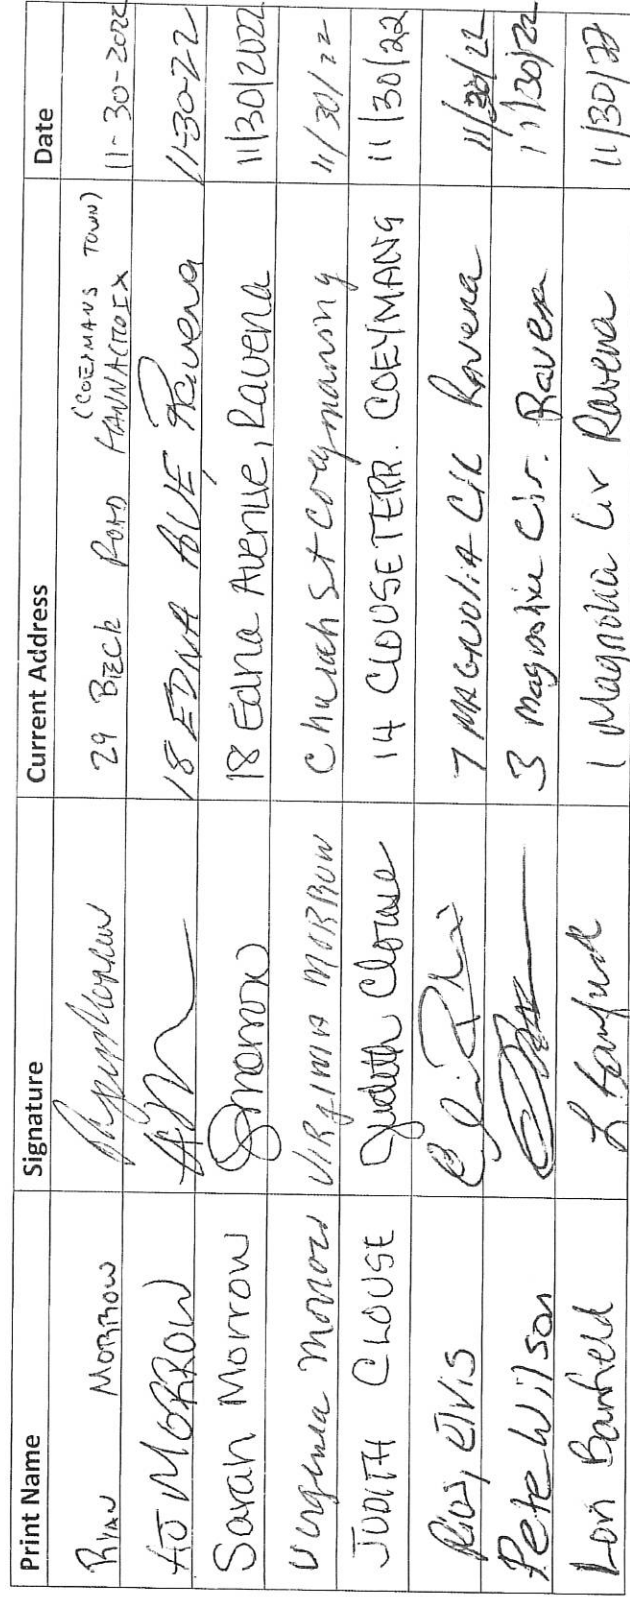 Print Name Signature Current Address Date
(COEYMANS TOWN)
RYAN MORROW 29 BIECK ROAD HANNACROIX 11-30-2022
AJ MORROW 18 EDNA AVE Ravena 11-30-22
Sarah Morrow SMorrow 18 Edna Avenue, Ravena 11/30/2022
Virginia Morrow VIRgINIA MORROW Church St Coeymans 11/30/22
JUDITH CLOUSE Judith Clouse 14 CLOUSE TERR. COEYMANS 11/30/22
Rios, Elvis 7 MAGNOLIA CIR Ravena 11/30/22
Pete Wilson 3 Magnolia Cir. Ravena 11/30/22
Lori Banfield L Banfield 1 Magnolia Cir Ravena 11/30/22